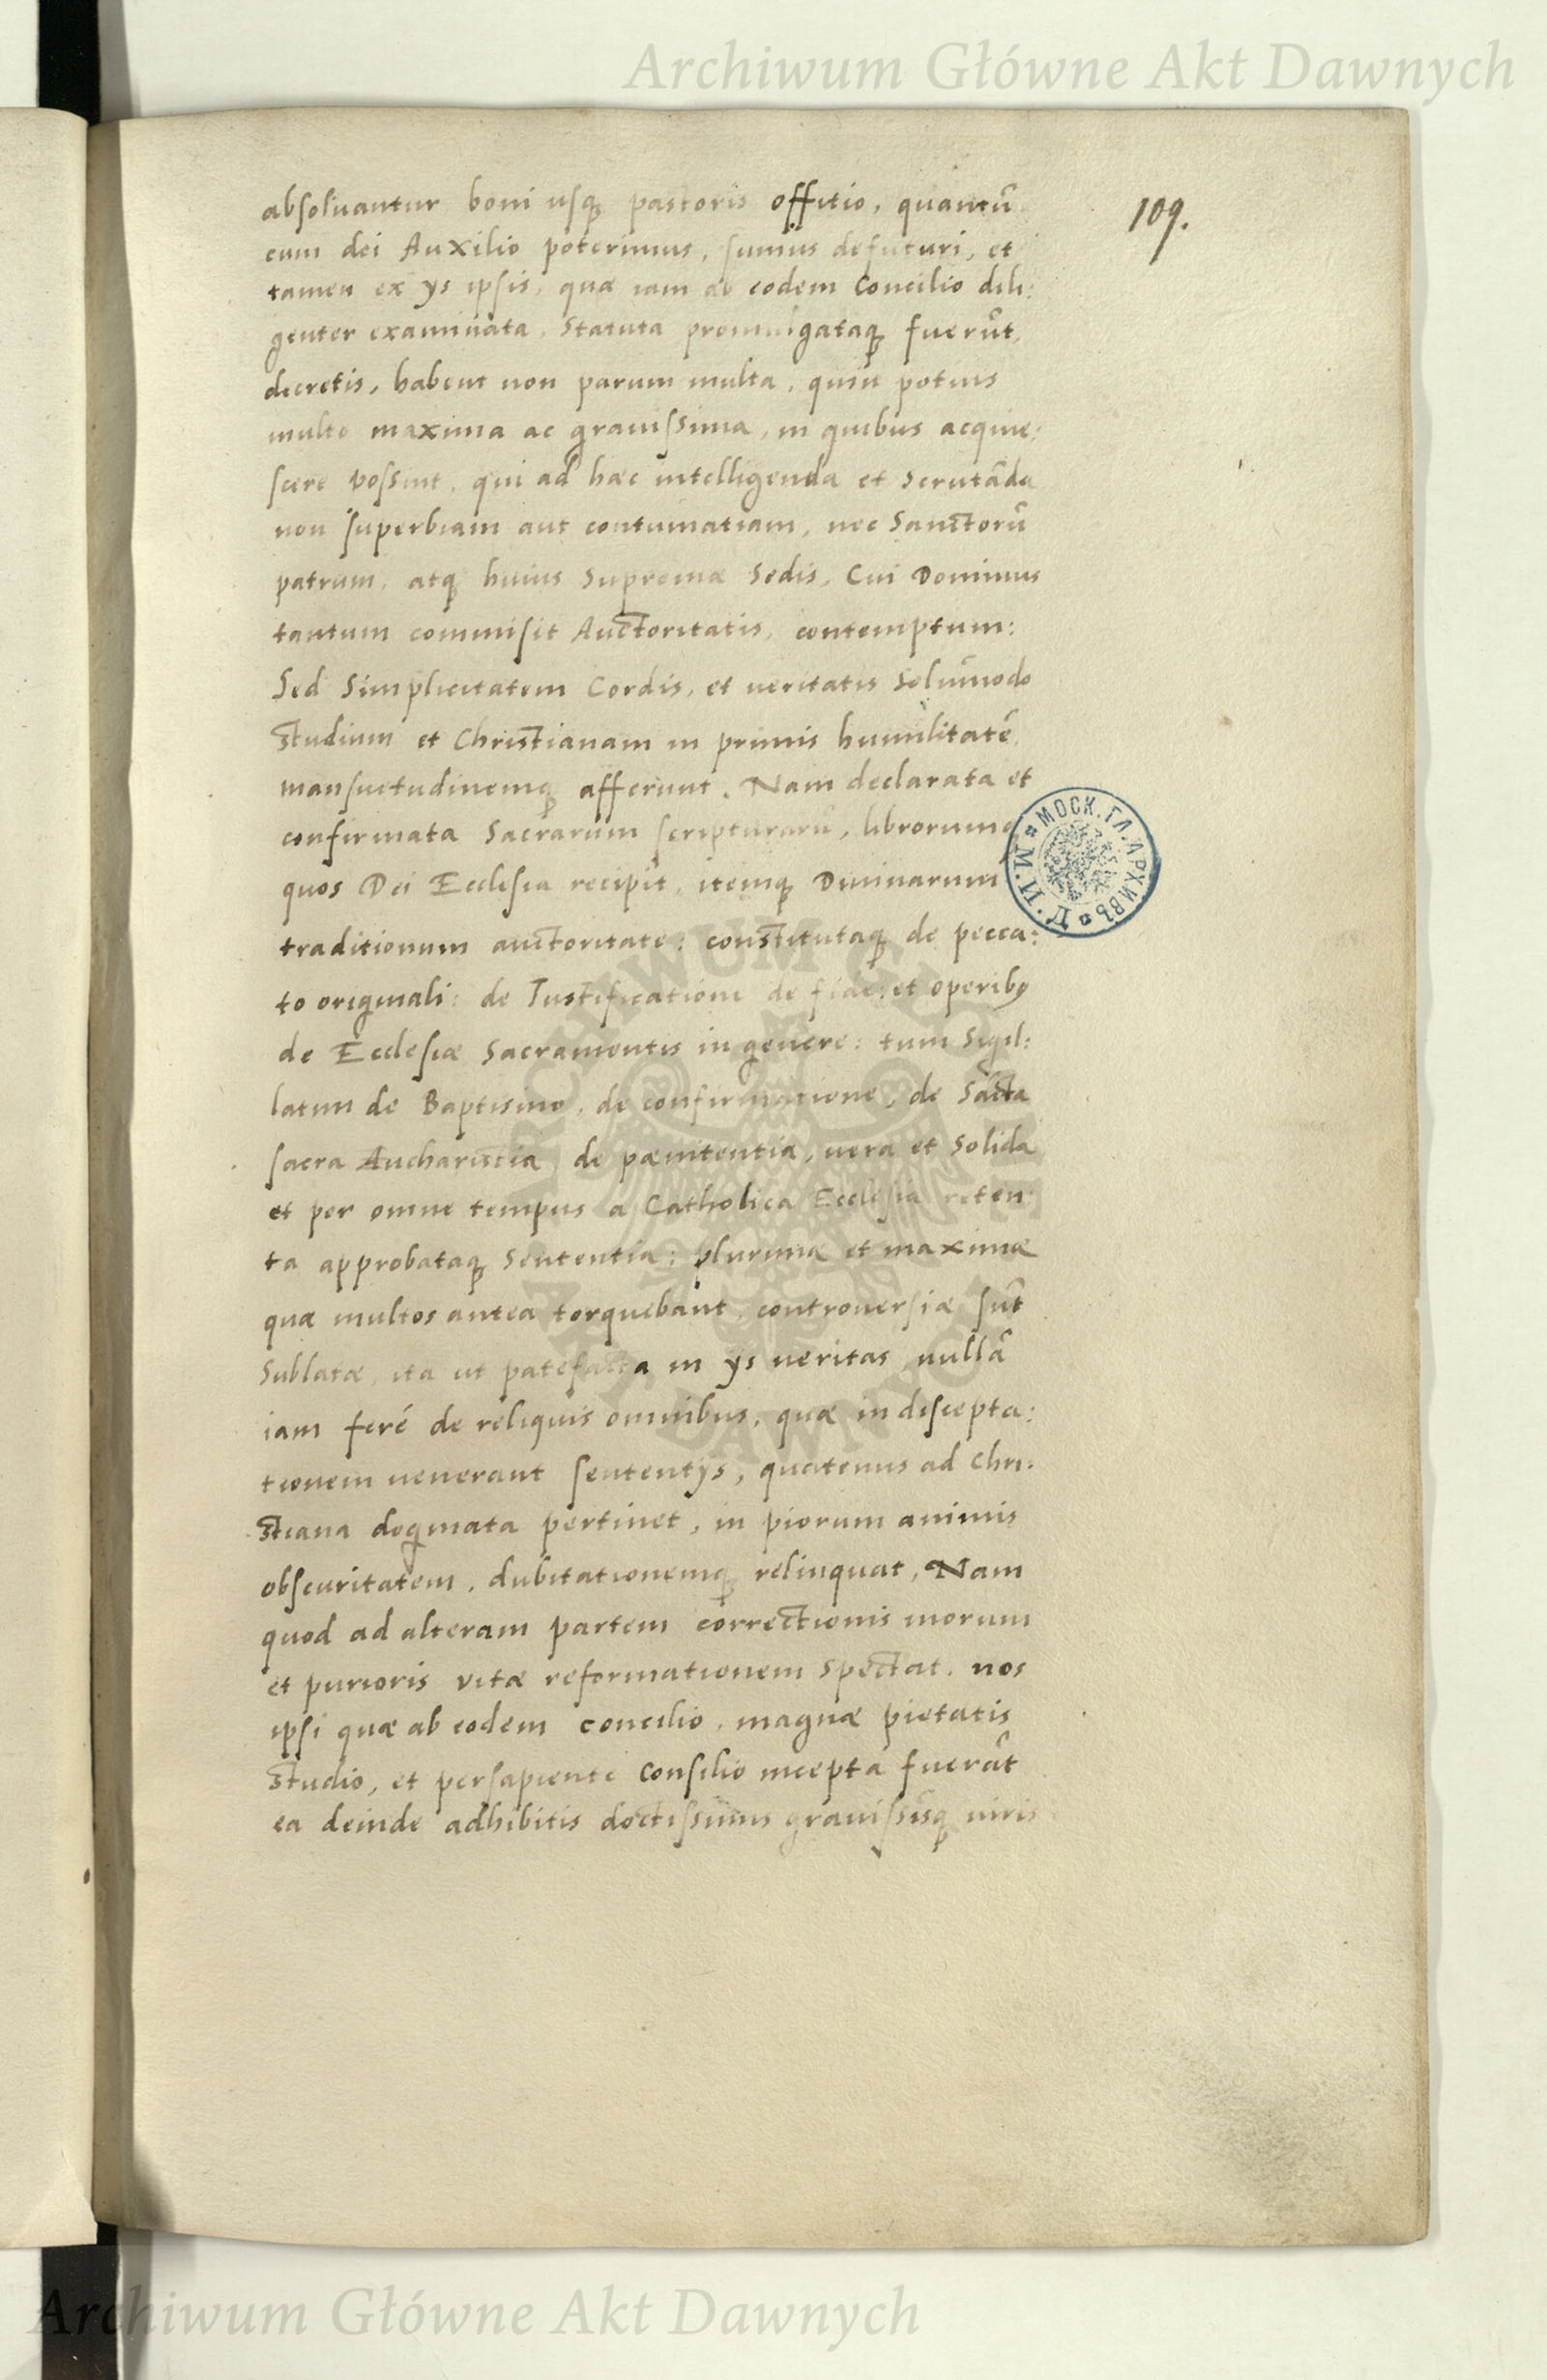 Archiwum Główne Akt Dawnych
109.
absoluantur boni usq́ pastoris offitio, quantũ
cum dei Auxilio poterimus, sumus defuturi, et
tamen ex ijs ipsis, quæ iam ab eodem concilio dili:
genter examinata, statuta promulgataq́ fuerũt,
decretis, habent non parum multa, quin potius
multo maxima ac grauissima, in quibus acquie:
scere possint, qui ad hæc intelligenda et scrutãda
non superbiam aut contumatiam, nec Sanctorũ
patrum, atq́ huius Supremæ Sedis, Cui Dominus
tantum commisit Auctoritatis, contemptum:
Sed Simplicitatem Cordis, et ueritatis Solũmodo
Studium et Christianam in primis humilitatẽ
mansuetudinemq́ afferunt. Nam declarata et
confirmata Sacrarum scripturarũ, librorumq́
quos Dei Ecclesia recipit, itemq́ Diuinarum
traditionum auctoritate: constitutaq́ de pecca:
to originali: de Iustificatione de fide: et operibꝰ
de Ecclesiæ Sacramentis in genere: tum Sigil:
latim de Baptismo, de confirmatione, de Sãcta
sacra Aucharistia, de pænitentia, uera et Solida
et per omne tempus a Catholica Ecclesia reten
ta approbataq́ Sententia: plurimæ et maximæ
quæ multos antea torquebant, controuersiæ sũt
Sublatæ, ita ut patefacta in ijs ueritas, nullã
iam ferè de reliquis omnibus, quæ in discepta:
tionem uenerant sententijs, quatenus ad Chri.
stiana dogmata pertinet, in piorum animis
obscuritatem, dubitationemq́ relinquat, Nam
quod ad alteram partem correctionis morum
et purioris vitæ reformationem Spectat, nos
ipsi quæ ab eodem concilio, magnæ pietatis
Studio, et persapiente Consilio incepta fuerãt
ea deinde adhibitis doctissimis grauissĩsq́ uiris
МОСК. ГЛ. АРХИВЪ
М. И. Д.
ARCHIWUM GŁÓWNE AKT DAWNYCH
Archiwum Główne Akt Dawnych